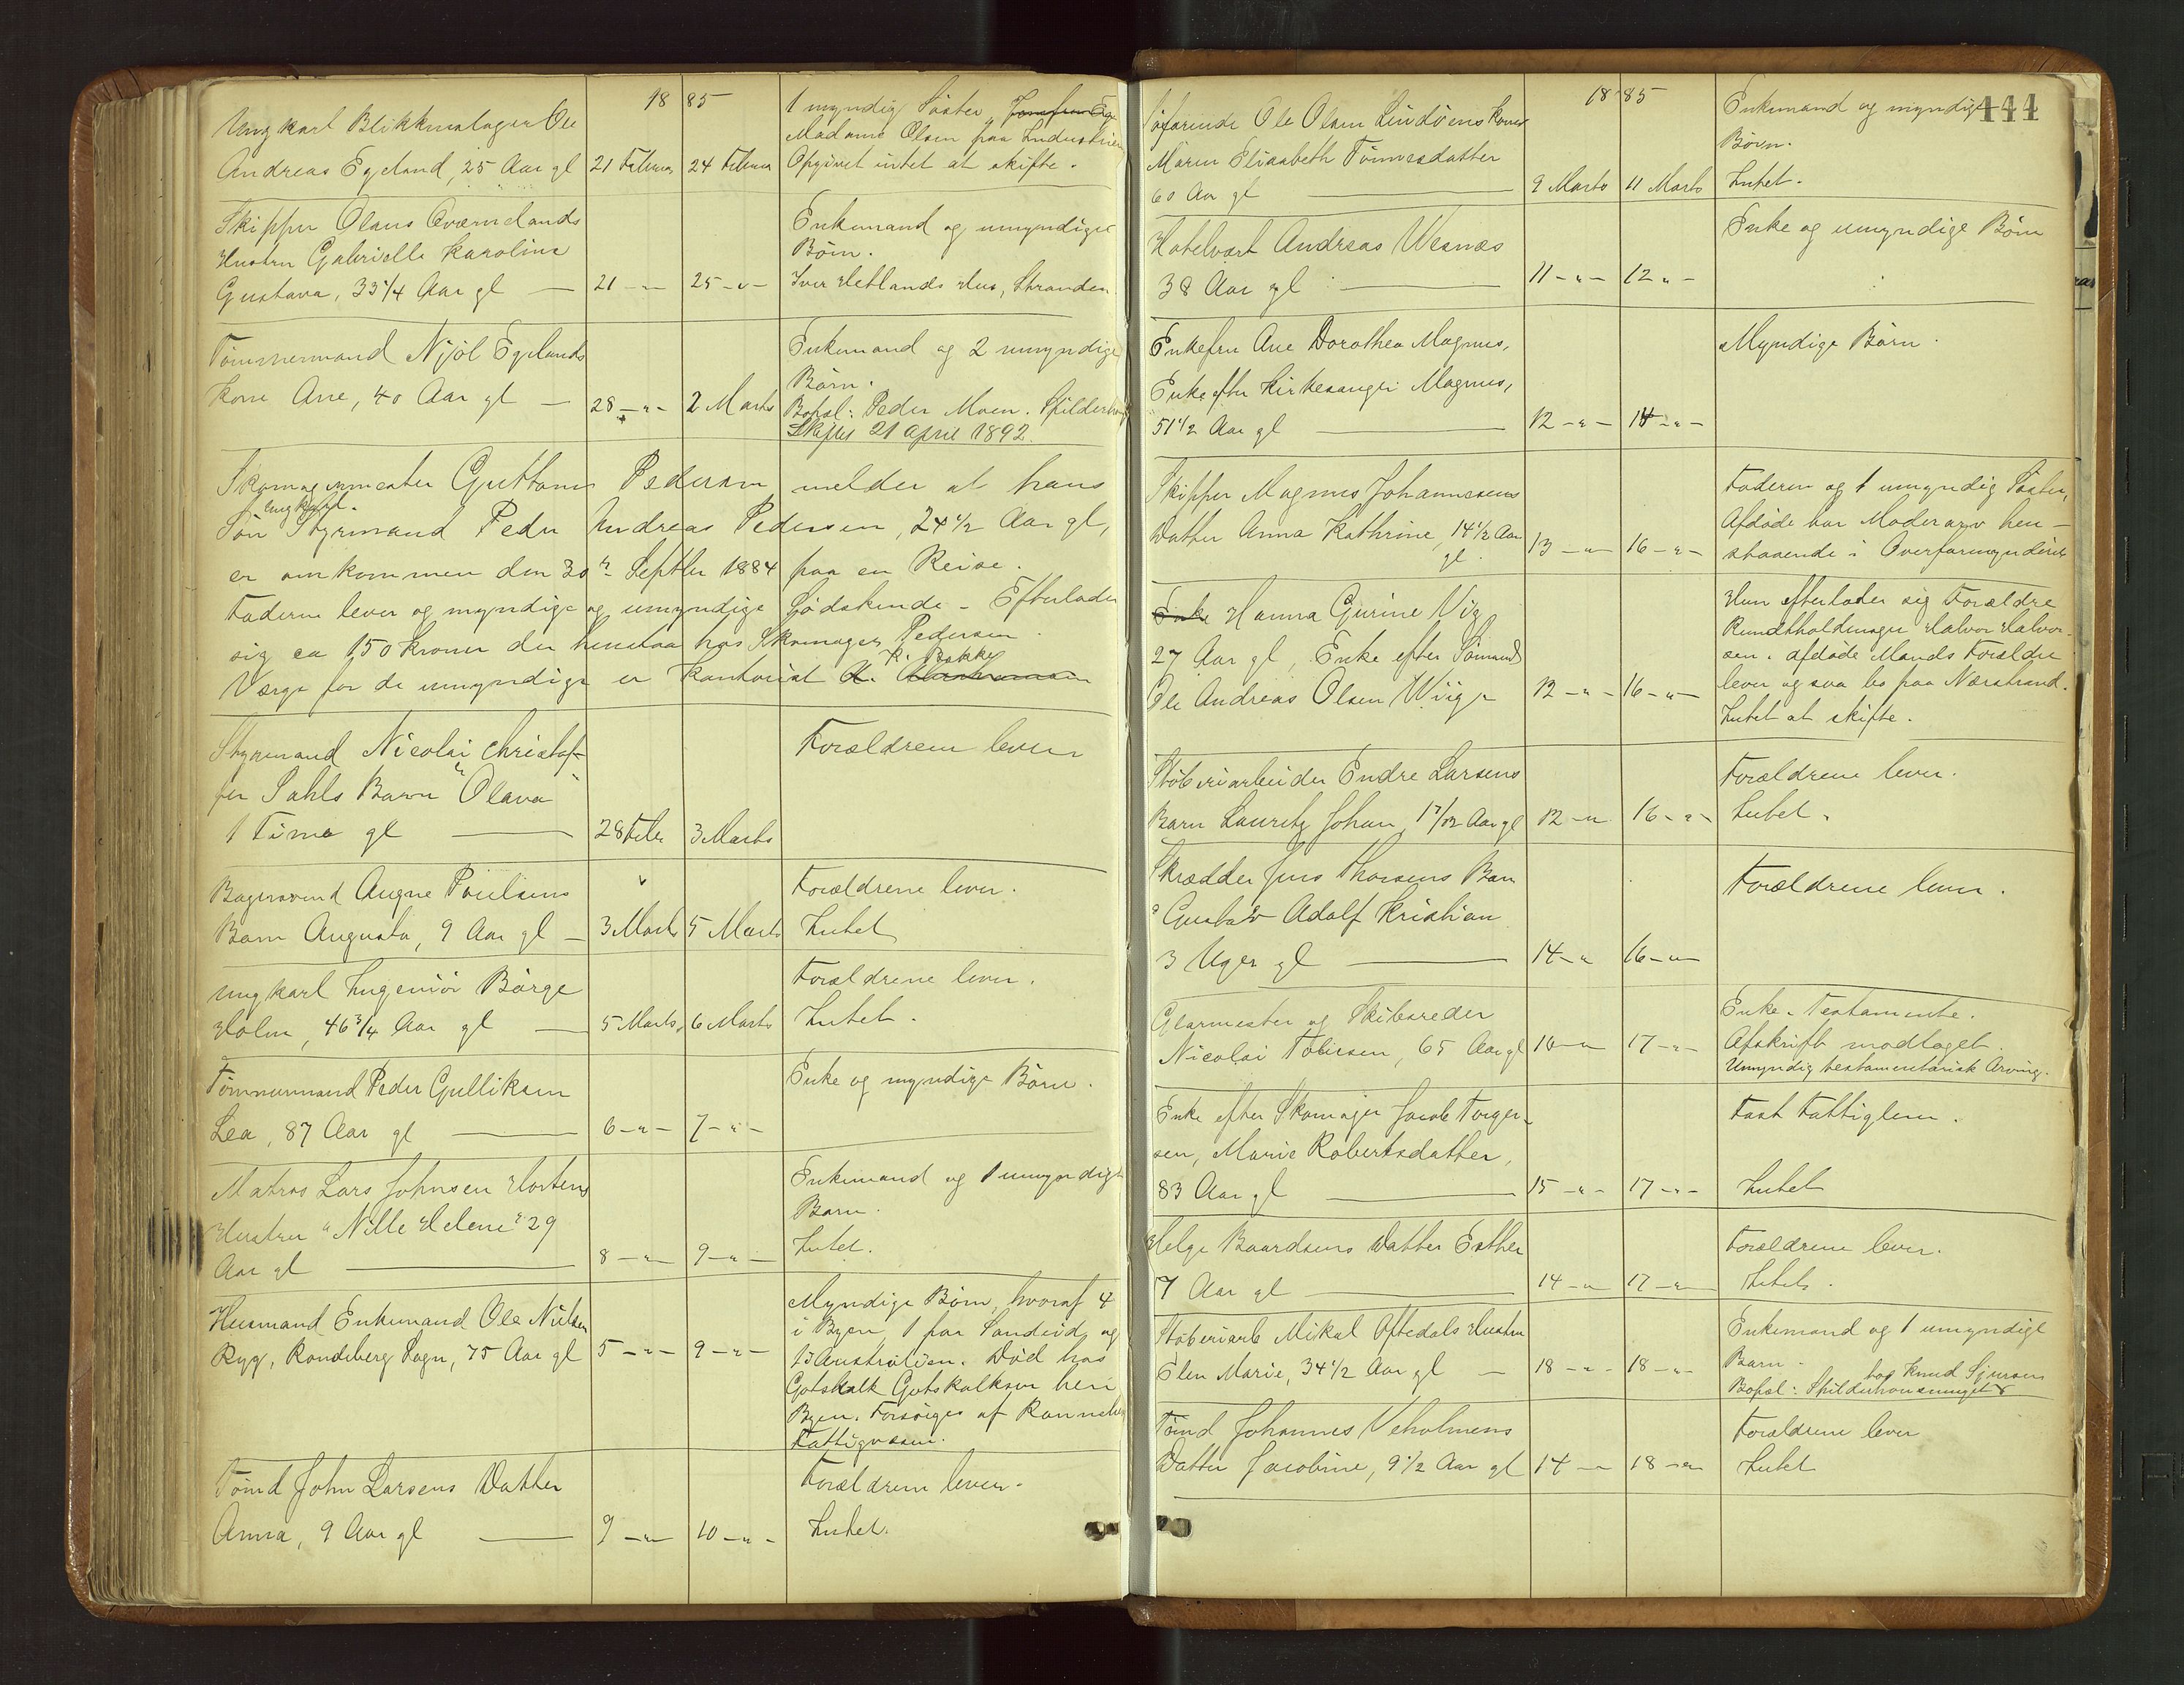 18 85
Ungkarl Blikkenslager Ole
Andreas Egeland, 25 Aar gl
21 Februar
24 Februar
1 myndig Søster,
Madame Olsen paa
Opgivet intet at skifte.
Skipper Olaus Qværnelands
Hustru Gabrielle Karoline
Gustava, 33 1/4 Aar gl —
21 — " —
25 — " —
Enkemand og umyndige
Børn.
Iver Hetlands Hus, Stranden
Tømmermand Njøl Egelands
Kone Ane, 40 Aar gl —
28 — " —
2 Marts
Enkemand og 2 umyndige
Børn.
Bopæl: Peder Moen.
Skiftet 21 April 1892.
Skomagermester Guttorm Pedersen melder at hans
Ungkarl.
Søn Styrmand Peder Andreas Pedersen, 24 1/2 Aar gl,
er omkommen den 30te Septbr 1884 paa en Reise.
Faderen lever og myndige og umyndige Sødskende - Efterlader
sig ca 150 Kroner der henstaa hos Skomager Pedersen.
K. Bakke
Værge for de umyndige er Kontorist
Styrmand Nicolai Christof-
fer Sahls Barn "Olava"
1 Time gl —
28 Febr
3 Marts
Forældrene lever
Bagersvend Augne Poulsens
Barn Augusta, 9 Aar gl —
3 Marts
5 Marts
Forældrene lever.
Intet
Ungkarl Ingeniør Børge
Holm, 46 3/4 Aar gl —
5 Marts
6 Marts
Forældrene lever.
Intet.
Tømmermand Peder Gulliksen
Lea, 87 Aar gl —
6 — " —
7 — " —
Enke og myndige Børn.
Matros Lars Johnsen Hortens
Hustru "Nille Helene" 29
Aar gl —
8 — " —
9 — " —
Enkemand og 1 umyndigt
Barn.
Intet.
Husmand Enkemand Ole Nielsen
Ryg, Randeberg Sogn, 75 Aar gl
5 — " —
9 — " —
Myndige Børn, hvoraf 4
i Byen, 1 paa Sandeid og
1 i Australien. Død hos
Gotskalk Gotskalksen her i
Byen. Forsørges af
Fattigvæsen.
Tømd John Larsens Datter
Anna, 9 Aar gl —
9 — " —
10 — " —
Forældrene lever.
Intet.
444
18 85
Søfarende Ole Olsen Lindøens Kone
Maren Elisabeth Tønnesdatter
60 Aar gl —
9 Marts
11 Marts
Enkemand og myndige
Børn.
Intet.
Hotelvært Andreas Wesnæs
38 Aar gl —
11 — " —
12 " —
Enke og umyndige Børn
Enkefru Ane Dorothea Magnus,
Enke efter Kirkesanger Magnus,
51 1/2 Aar gl —
12 — " —
14 — " —
Myndige Børn.
Skipper Magnus Johannesens
Datter Anna Kathrine, 14 1/2 Aar
gl.
13 — " —
16 — " —
Faderen og 1 umyndig Søster,
Afdøde har Moderarv hen-
staaende i Overformynderiet
Enke Hanna Gurine Vig
27 Aar gl, Enke efter Sømand
Ole Andreas Olsen Wiig
12 — " —
16 — " —
Hun efterlader sig Forældre
Rundtholdmager Halvor Halvor-
sen. afdøde Mands Forældre
lever ogsaa bo paa Nærstrand.
Intet at skifte.
Støberiarbeider Endre Larsens
Barn Lauritz Johan, 1 7/12 Aar gl
12 — "
16 — " —
Forældrene lever.
Intet.
Skrædder Jens Thorsens Barn
Gustav Adolf Kristian
3 Uger gl —
14 — "
16 — " —
Forældrene lever.
Glarmester og Skibsreder
Nicolai Tobiesen, 65 Aar gl
16 — "
17 — " —
Enke. Testamente.
Afskrift modtaget.
Umyndig testamentarisk Arving.
Enke efter Skomager Jacob Torger-
sen, Marie Robertsdatter,
83 Aar gl —
15 — " —
17 — " —
Fast Fattiglem.
Intet
Helge Baardsens Datter Esther
7 Aar gl —
14 — "
17 — "
Forældrene lever.
Intet.
Støberiarb Mikal Oftedals Hustru
Elen Marie, 34 1/2 Aar gl —
18 — " —
18 — " —
Enkemand og 1 umyndigt
Barn.
hos Knud Sjursen
Bopæl:
Tømd Johannes Veholmens
Datter Jacobine, 9 1/2 Aar gl
14 — "
18 — " —
Forældrene lever
Intet